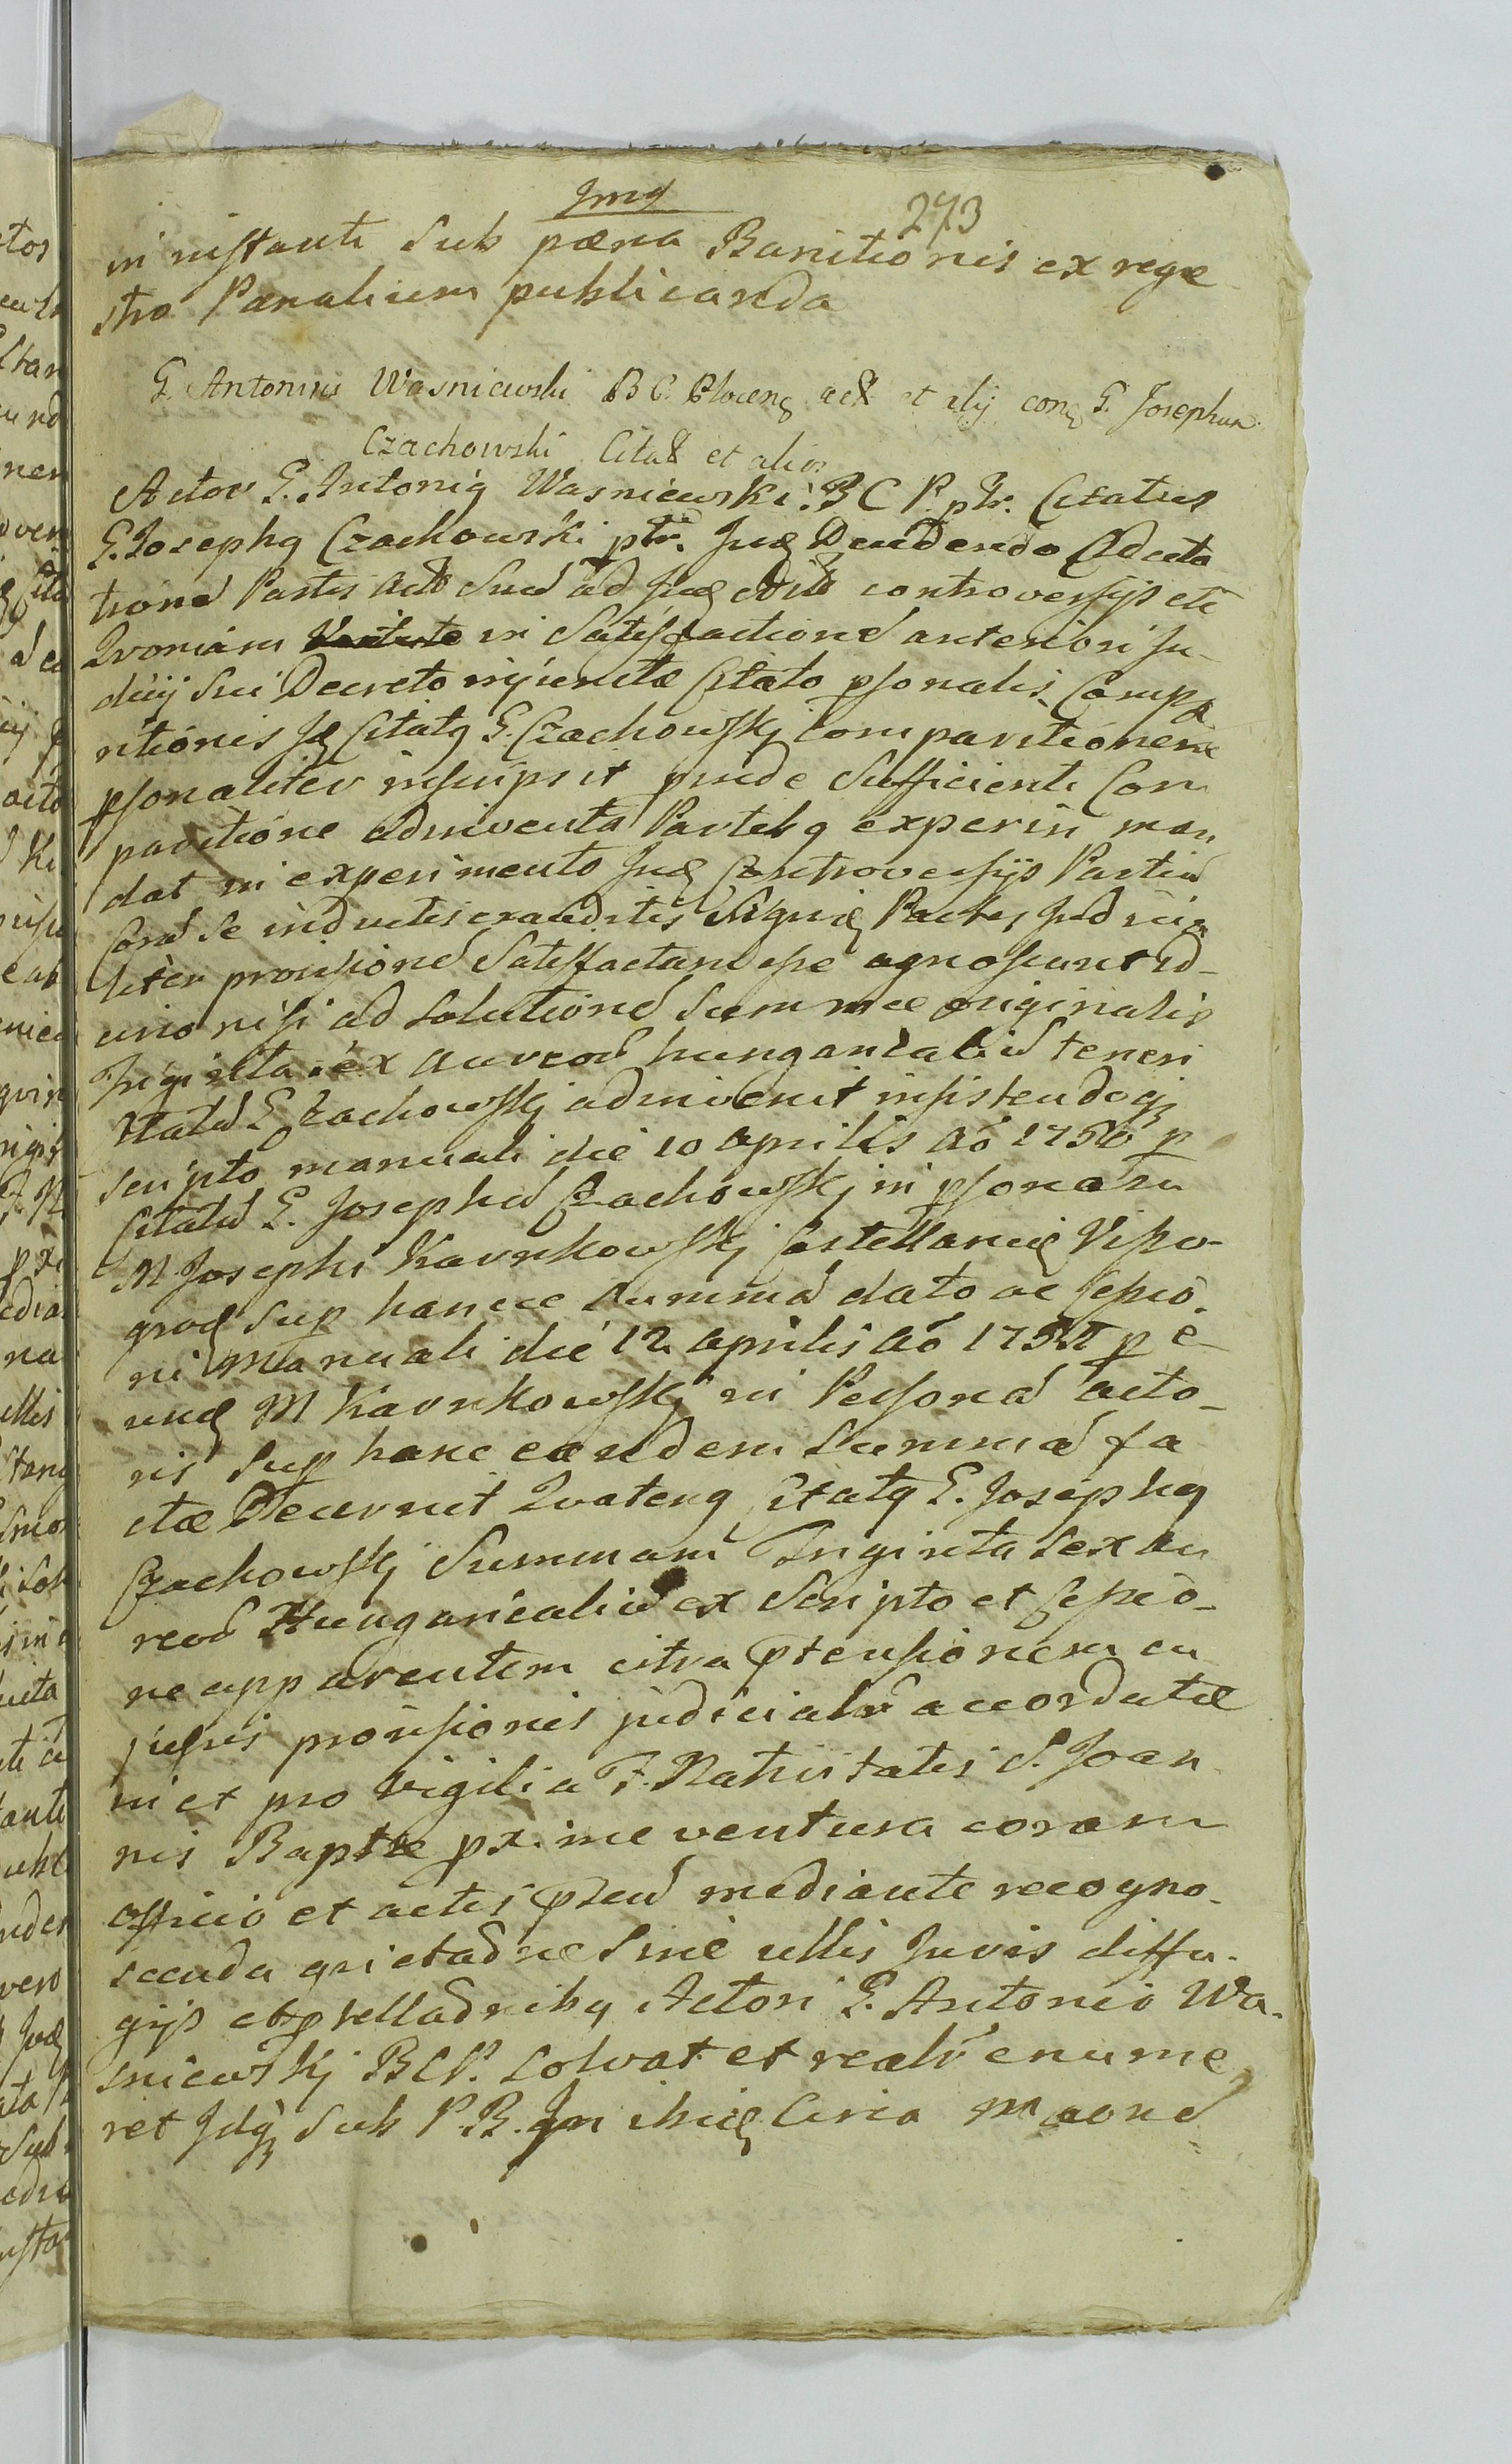 Jmq
273
in instanti Sub pœna Banitionis ex rege
stro Pœnalium publicanda
G. Antonius Wasniewski B C. Plocens act et alij cons G. Josephum
Czachowski Citat et alios
Actor G. Antonig Wasniewski B C P. ptr. Citatus
G. Josephg Czachowski ptr. Jud Decidendo Citato
Partis act Sua ad controversijs etc
Qvoniam in Satisfactione anteriori Ju-
dicij Sui Decreto injunctæ Citato psonalis Compa
ritionis Jd Citatg G. Czachowskj Comparitionem
psonaliter inscripsit proude Sufficienti Com
paritione adinventa Partibg experiri man
dat in experimento Jud Controversijs Partiu
Cora Se inductis exauditis Partes Judicia
liter provisione Satisfactam esse agnoscunt id-
circo nisi ad Solutione Summæ originalis
Triginta sex aureor hungaricaliu teneri
Citatu G Czachowskj adinvenit insistendoqj
Scripto manuali die 10 aprilis aō 1756 p
Citatu G. Josephu Czachowskj in psonam
M Josephi Karnkowskj Castellanid Viso-
grod Sup hancce Summa dato ac Cessio-
ni Manuali die 12 aprilis aō p e-
und M Karnkowskj in Persona acto-
ris Sup hanc eandem Summa fa
ctæ Decernit Qvateng Citatg G. Josephg
Czachowskj Summam Triginta Sex au
reor Hungaricaliu ex Scripto et Cessio-
ne apparentem citra ptensionem cu
jusvis provisionis judicialr accordatæ
in et pro Vigilia F. Nativitatis S. Joan
nis Baptæ px. ime ventura coram
officio et actis pteu mediante recogno-
scenda qvietadne Sine ullis Juris diffu-
gijs Actori G. Antonio Wa-
sniewskj BCP. Solvat et realr enume
ret Jdqj Sub P.B. Jn